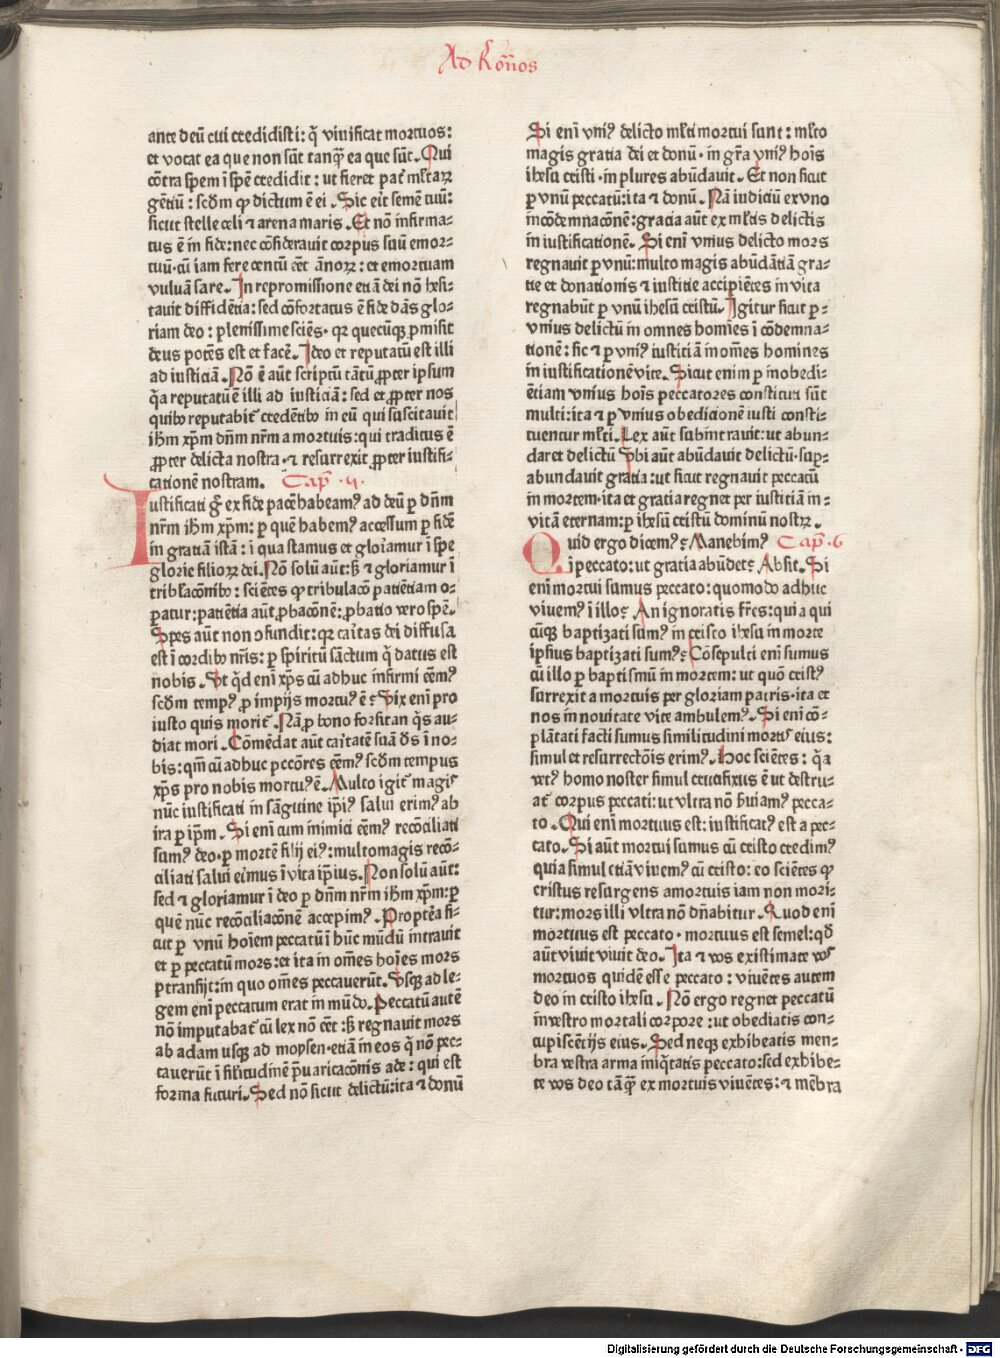 Ad Romōs
ante deū cui credidisti: q̄ viuificat mortuos:
et vocat ea que non sūt tanq̄ ea que sūt. Qui
cōtra spem ī spē credidit: ut fieret pat̄ mltaꝝ
gētiū: scdm qꝫ dictum ē ei. Sic eit̄ semē tuū:
sicut stelle celi ⁊ arena maris. Et nō infirma-
tus ē in fide: nec cōsiderauit corpus suū emor-
tuū. cū iam fere centū eēt ānoꝝ: et emortuam
vuluā sare. In repromissione etiā dei nō hesi-
tauit diffidētia: sed cōfortatus ē fide dās glo-
riam deo: plenissime sciēs. qꝛ quecūqꝫ ꝓmisit
deus potēs est et facē. Ideo et reputatū est illi
ad iusticiā. Nō ē aūt scriptū tātū ꝓpter ipsum
q̄a reputatū ē illi ad iusticiā: sed et ꝓpter nos
quibꝰ reputabit̄ credētibꝰ in eū qui suscitauit
ihm xp̄m dn̄m nr̄m a mortuis: qui traditus ē
ꝓpter delicta nostra. ⁊ resurrexit ꝓpter iustifi-
cationē nostram. Cap̄. 5.
Iustificati g̊ ex fide pacē habeamꝰ ad deū ꝑ dn̄m
nr̄m ihm xp̄m: ꝑ quē habemꝰ accessum ꝑ fidē
in gratiā istā: ī qua stamus et gloiamur ī spe
glorie filioꝝ dei. Nō solū aūt: sꝫ ⁊ gloriamur ī
tribłacōnibꝰ: sciētes qꝫ tribulacō patiētiam o-
ꝑatur: patiētia aūt ꝓbacōnē: ꝓbatio vero spē.
Spes aūt non ↄfundit: qꝛ caritas dei diffusa
est ī cordibꝰ nr̄is: ꝑ spiritū sāctum q̄ datus est
nobis. Ut qd enī xp̄s cū adhuc infirmi eēmꝰ
scdm tempꝰ ꝑ impijs mortuꝰ ē? Vix enī pro
iusto quis morit̄. Nā ꝓ bono forsitan q̄s au-
diat mori. Cōmēdat aūt caritatē suā ds̄ ī no-
bis: qm̄ cū adhuc pccōres eēmꝰ scdm tempus
xp̄s pro nobis mortuꝰ ē. Multo igit̄ magis
nūc iustificati in sāguine ip̄iꝰ salui erimꝰ ab
ira ꝑ ip̄m. Si enī cum inimici eēmꝰ recōciliati
sumꝰ deo. ꝑ mortē filij eiꝰ: multomagis recō-
ciliati salui erimus ī vita ip̄ius. Non solū aūt:
sed ⁊ gloriamur ī deo ꝑ dn̄m nr̄m ihm xp̄m: ꝑ
quē nūc recōciliacōnē accepimꝰ. Propterea si-
cut ꝑ vnū hoiem peccatū ī hūc mūdū intrauit
et ꝑ peccatū mors: et ita in om̄es hoīes mors
ꝑtransijt: in quo om̄es peccauerūt. Usqꝫ ad le-
gem enī peccatum erat in mūdo. Peccatū autē
nō imputabat̄ cū lex nō eēt: sꝫ regnauit mors
ab adam usqꝫ ad moysen. etiā in eos q̄ nō pec-
cauerūt ī siłitudinē p̄uaricacōnis ade: qui est
forma futuri. Sed nō sicut delictū: ita ⁊ donū
Si enī vniꝰ delicto młti mortui sunt: młto
magis gratia dei et donū. in gr̄a vniꝰ hois
ihesu cristi. in plures abūdauit. Et non sicut
ꝑ vnū peccatū: ita ⁊ donū. Nā iudiciū ex vno
in cōdemnacōnē: gracia aūt ex młtis delictis
in iustificationē. Si enī vnius delicto mors
regnauit ꝑ vnū: multo magis abūdātiā gra-
tie et donationis ⁊ iustitie accipiētes in vita
regnabūt ꝑ vnū ihesū cristū. Igitur sicut ꝑ-
vnius delictū in omnes homīes ī cōdemna-
tionē: sic ⁊ ꝑ vniꝰ iustitiā in om̄es homines
in iustificationē vite. Sicut enim ꝑ inobedi-
ētiam vnius hois peccatores constituti sūt
multi: ita ⁊ ꝑ vnius obedicionē iusti consti-
tuentur młti. Lex aūt subintrauit: ut abun-
daret delictū Ubi aūt abūdauit delictū. supꝑ-
abundauit gratia: ut sicut regnauit peccatū
in mortem. ita et gratia regnet per iustitiā in-
vitā eternam: ꝑ ihesū cristū dominū nostꝝ.
Quid ergo dicemꝰ? Manebimꝰ Cap̄. 6
ī peccato: ut gratia abūdet? Absit. Si
enī mortui sumus peccato: quomodo adhuc
viuemꝰ ī illo? An ignoratis fr̄es: quia qui
cūqꝫ baptizati sumꝰ in cristo ihesu in morte
ipsius baptizati sumꝰ? Cōsepulti enī sumus
cū illo ꝑ baptismū in mortem: ut quō cristꝰ
surrexit a mortuis per gloriam patris. ita et
nos in nouitate vite ambulemꝰ. Si enī cō-
plātati facti sumus similitudini mortis eius:
simul et resurrectōis erimꝰ. Hoc sciētes: q̄a
vetꝰ homo noster simul crucifixus ē ut destru-
at̄ corpus peccati: ut vltra nō ẜuiamꝰ pecca-
to. Qui enī mortuus est: iustificatꝰ est a pec-
cato. Si aūt mortui sumus cū cristo credimꝰ
quia simul etiā viuemꝰ cū cristo: eo sciētes qꝫ
cristus resurgens a mortuis iam non mori-
tur: mors illi vltra nō dn̄abitur. Quod enī
mortuus est peccato. mortuus est semel: qd̄
aūt viuit viuit deo. Ita ⁊ vos existimate vos
mortuos quidē esse peccato: viuētes autem
deo in cristo ihesu. Nō ergo regnet peccatū
in vestro mortali corpore: ut obediatis con-
cupiscētijs eius. Sed neqꝫ exhibeatis men-
bra vestra arma iniq̄tatis peccato: sed exhibe-
te vos deo tāqꝫ ex mortuis viuētes: ⁊ mēbra
Digitalisierung gefördert durch die Deutsche Forschungsgemeinschaft - DFG